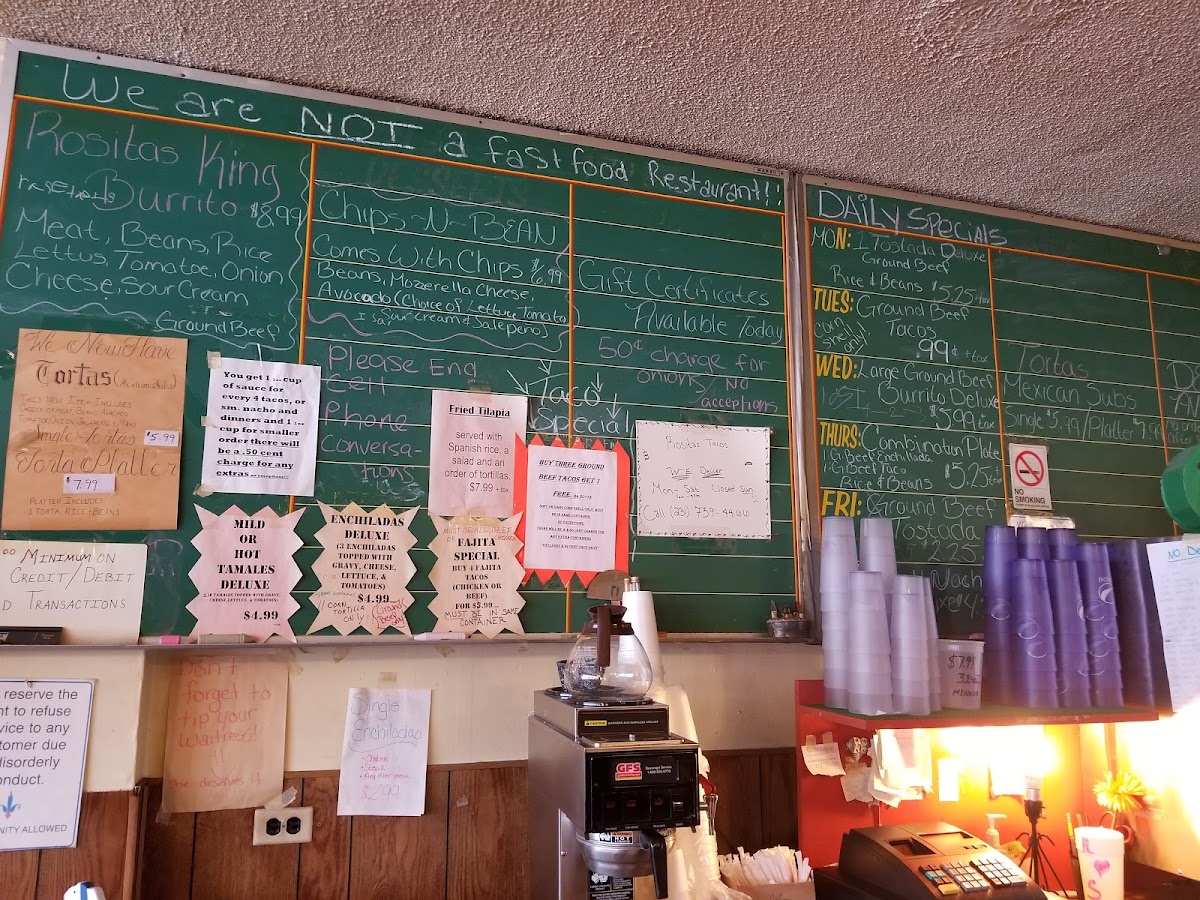 We are NOT a fast food Restaurant!!
Rositas King
Burrito $8.99
Meat, Beans, Rice
Lettus, Tomatoe, Onion
Cheese, Sour Cream
Ground Beef
Chips -N- BEAN
Comes With Chips $6.99
Beans, Mozerella Cheese,
Avocado (Choice of Lettuce Tomato
Sour cream & Salepeno)
Please End
Cell
Phone
Conversa-
tions
Taco
Special
Gift Certificates
Available Today
50¢ charge for
onions / No
acceptions
DAILY SPECIALS
MON: 1 Tostada Deluxe
Ground Beef
Rice & Beans $5.25 + tax
TUES: Ground Beef
Tacos
corn
shell
only!
.99¢ + tax
WED: Large Ground Beef
Burrito Deluxe
$5.99 + tax
THURS: Combination Plate
1. G. Beef Enchilada
1. G. Beef Taco
Rice & Beans $5.25 + tax
FRI: Ground Beef
Tostada
Tortas
Mexican Subs
Single $5.99/Platter $7.99
We Now Have
Tortas (Mexican Subs)
This New Item Includes
Choice of Meat, Beans, Avacado
Single Tortas $5.99
Torta Platter
$7.99
Platter Includes
1 Torta Rice & Beans
You get 1 ... cup
of sauce for
every 4 tacos, or
sm. nacho and
dinners and 1 ...
cup for smaller
order there will
be a .50 cent
charge for any
extras no exceptions!!
Fried Tilapia
served with
Spanish rice, a
salad and an
order of tortillas.
$7.99 + tax
BUY THREE GROUND
BEEF TACOS GET 1
FREE.
Rositas Tacos
WE Deliver
Mon-Sat Closed Sun
MILD
OR
HOT
TAMALES
DELUXE
$4.99
ENCHILADAS
DELUXE
(3 ENCHILADAS
TOPPED WITH
GRAVY, CHEESE,
LETTUCE, &
TOMATOES)
$4.99
CORN
TORTILLA
ONLY!
Ground
Beef
only
FAJITA
SPECIAL
BUY 4 FAJITA
TACOS
(CHICKEN OR
BEEF)
FOR $5.99
MUST BE IN SAME
CONTAINER
NO
SMOKING
Minimum on
Credit/Debit
Transactions
reserve the
to refuse
any
due
disorderly
conduct.
ALLOWED
Don't
forget to
tip your
Waitress!
She deserves it
Single
Enchiladas
• Chicken
• Steak
$2.99
CAUTION
GFS
Beverage Service
$7.99
R
S